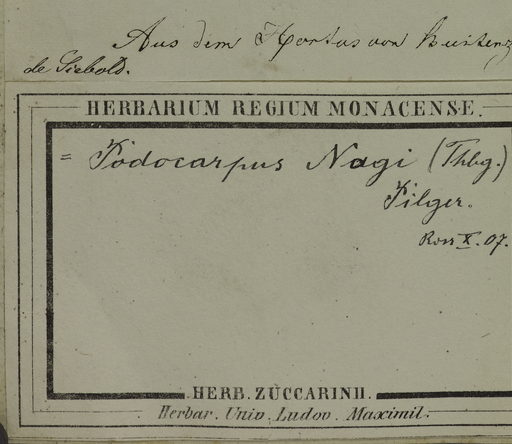 Aus dem Hortus von Buitenz
de Siebold.
HERBARIUM REGIUM MONACENSE.
= Podocarpus Nagi (Thbg.)
Pilger.
Ross X. 07.
HERB. ZUCCARINII.
Herbar. Univ. Ludov. Maximil.